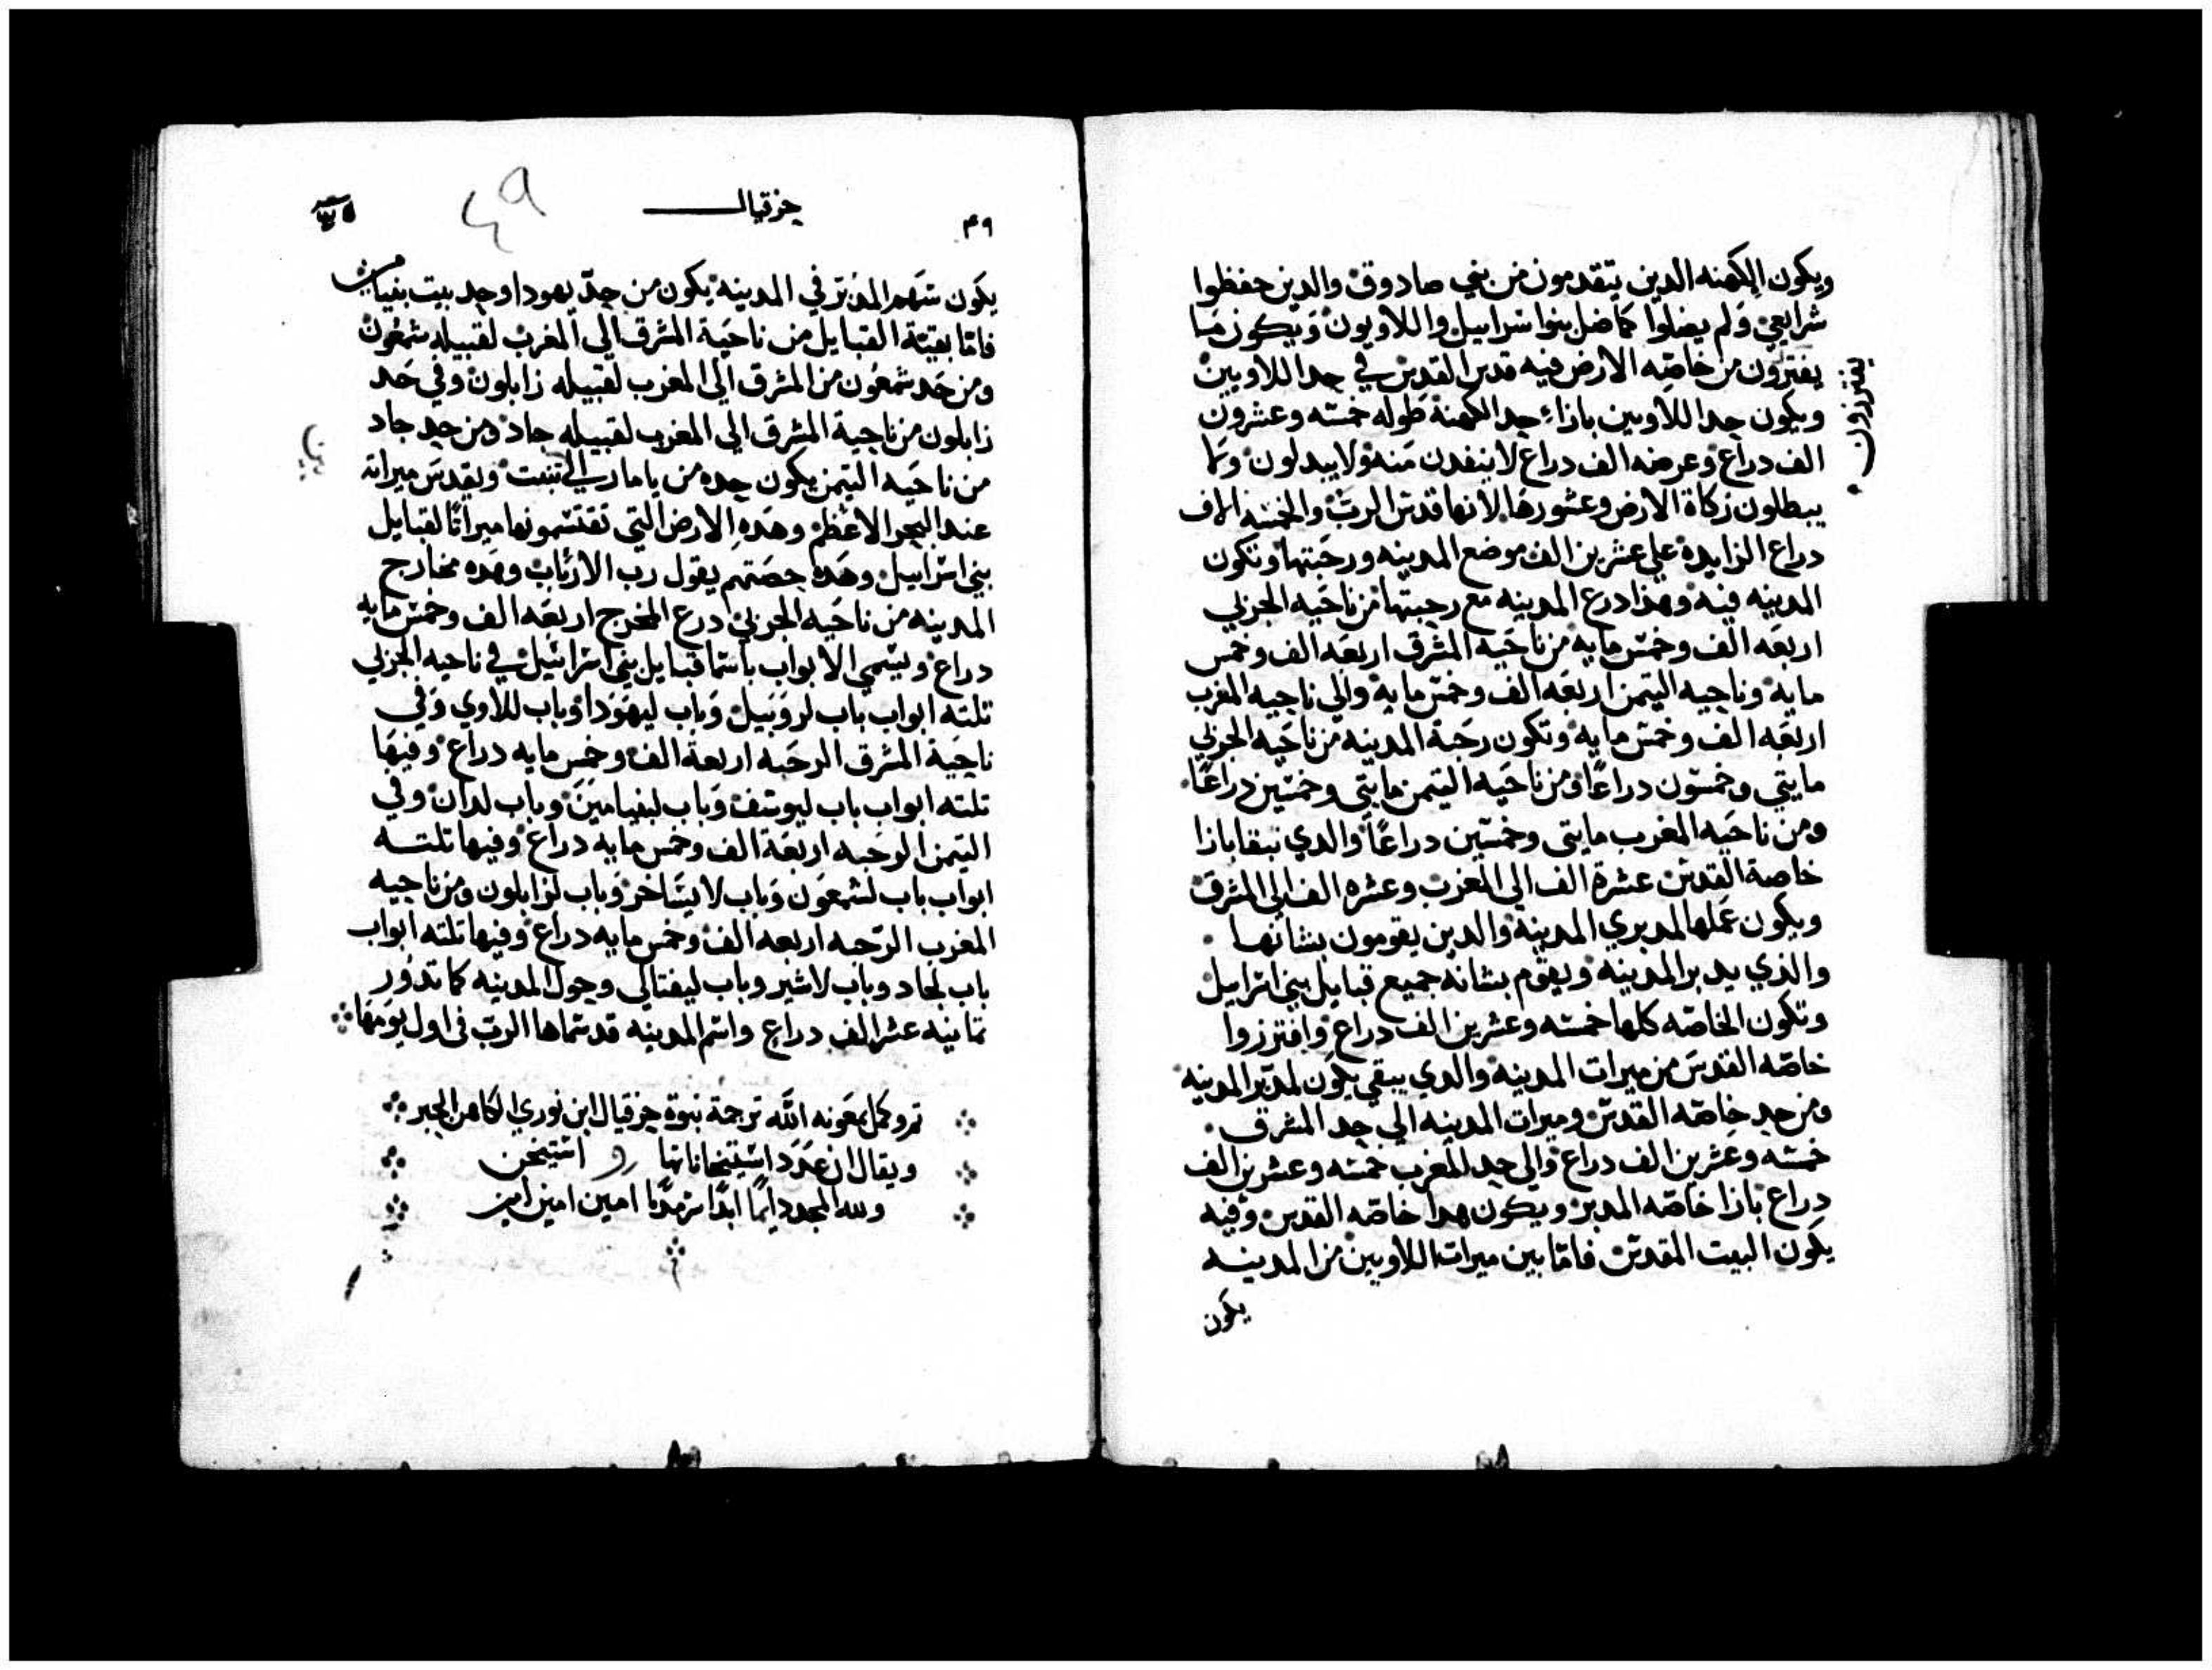 ويكون الكهنه الدين يتقدمون من بني صادوق والدين حفظوا
شرايعي ولم يضلوا كما ضل بنوا اسراييل واللاويون ويكون ما
يفترون من خاصه الارض فيه قدس القدس في حد اللاويين
يفترزون
ويكون حد اللاويين بازاء حد الكهنة طوله خمسه وعشرون
الف دراع وعرضه الف دراع لا ينفدن منه ولا يبدلون ولا
يبطلون زكاة الارض وعشورها لانها قدس الرب والخمسه الاف
دراع الزايدة علي عشرين الف موضع المدينه ورحبتها وتكون
المدينه فيه وهذا درع المدينه مع رحبتها من ناحيه الجربي
اربعه الف وخمس مايه من ناحيه المشرق اربعه الف وخمس
مايه وناحيه التيمن اربعه الف وخمس مايه والي ناحيه المغرب
اربعه الف وخمس مايه وتكون رحبة المدينه من ناحيه الجربي
مايتي وخمسون دراعًا ومن ناحيه التيمن مايتي وخمسين دراعًا
ومن ناحيه المغرب مايتى وخمسين دراعًا والدي تبقا بازا
خاصة القدس عشرة الف الي المغرب وعشره الف الي المشرق
ويكون عملها لمدبري المدينة والدين يقومون بشانها
والذي يدبر المدينه ويقوم بشانه جميع قبايل بني اسراييل
وتكون الخاصه كلها خمسه وعشرين الف دراع وافترزوا
خاصه القدس من ميرات المدينه والدي يبقي يكون لمدبر المدينه
ومن حد خاصه القدس وميرات المدينه الي حد المشرق
خمسه وعشرين الف دراع والي حد المغرب خمسه وعشرين الف
دراع بازا خاصه المدبر ويكون هدا خاصه القدس وفيه
يكون البيت المقدس فاما بين ميرات اللاويين من المدينه
يكون
٤٩ حزقيال
٤٩
يكون سهم المدبر في المدينه يكون من حد يهودا وحد بيت بنيامين
فاما بقية القبايل من ناحية المشرق الي المغرب لقبيله شمعون
ومن حد شمعون من المشرق الي المغرب لقبيله زابلون وفي حد
زابلون من ناحية المشرق الي المغرب لقبيله جاد ومن حد جاد
من ناحيه التيمن يكون حده من ويقدس ميراته
عند البحر الاعظم وهده الارض التي تقتسمونها ميراتًا لقبايل
بني اسراييل وهده حصتهم يقول رب الارباب وهده مخارج
المدينه من ناحيه الجربي درع المخرج اربعه الف وخمس مايه
دراع وتسمي الابواب باسما قبايل بني اسراييل في ناحيه الجربي
تلته ابواب باب لروبيل وباب ليهودا وباب للاوي وفي
ناحية المشرق الرحبه اربعة الف وخمس مايه دراع وفيها
تلته ابواب باب ليوسف وباب لبنيامين وباب لدان وفي
التيمن الرحبه اربعة الف وخمس مايه دراع وفيها تلته
ابواب باب لشمعون وباب لايساخر وباب لزابلون ومن ناحيه
المغرب الرحبه اربعه الف وخمس مايه دراع وفيها تلته ابواب
باب لجاد وباب لاشير وباب لنفتالي وحول المدينه كما تدور
تمانيه عشر الف دراع واسم المدينه قد سماها الرب في اول يومها
تم وكمل بمعونه الله ترجمة نبوة حزقيال ابن نوري الكاهن الحبر
ويقال ان عدد استيخاناتها استيخن
ولله المجد دايمًا ابدًا سرمدًا امين امين امين